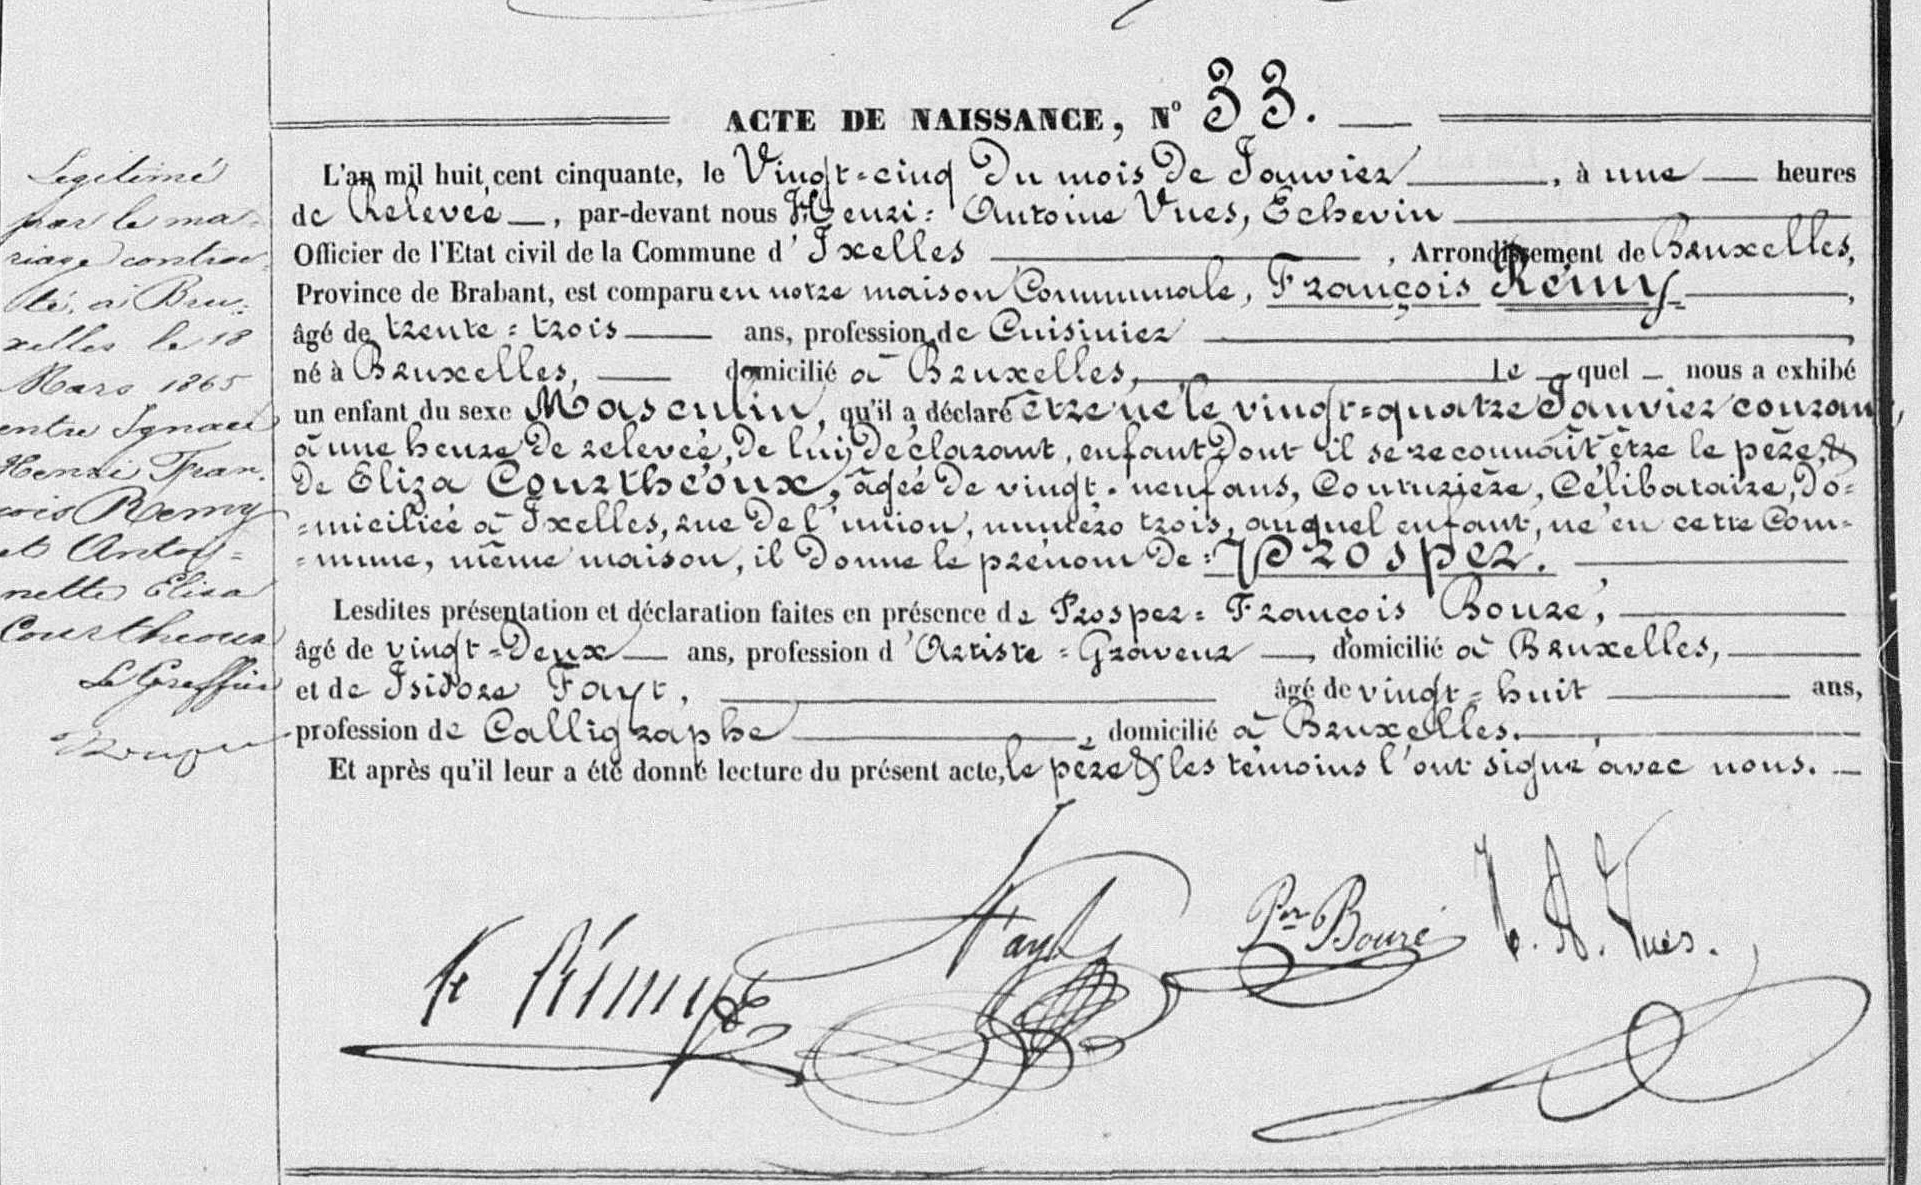 ACTE DE NAISSANCE, N° 33.
L'an mil huit cent cinquante, le Vingt-cinq du mois de Janvier, à une heures
de Relevée, par-devant nous Henri-Antoine Vues, Echevin
Officier de l'Etat civil de la Commune d'Ixelles, Arrondissement de Bruxelles,
Province de Brabant, est comparu en notre maison Communale, François Rémy,
âgé de trente-trois ans, profession de Cuisinier
né à Bruxelles, domicilié à Bruxelles, le quel nous a exhibé
un enfant du sexe Masculin, qu'il a déclaré être né le vingt-quatre Janvier courant,
à une heure de relevée, de lui déclarant, enfant dont il se reconnaît être le père, &
de Eliza Courthéoux, âgée de vingt-neuf ans, Couturière, Célibataire, do-
-miciliée à Ixelles, rue de l'union, numéro trois, auquel enfant, né en cette Com-
-mune, même maison, il donne le prénom de: Prosper.
Lesdites présentation et déclaration faites en présence de Prosper-François Bouré,
âgé de vingt-Deux ans, profession d'Artiste-Graveur, domicilié à Bruxelles,
et de Isidore Fayt, âgé de vingt-huit ans,
profession de Calligraphe, domicilié à Bruxelles.
Et après qu'il leur a été donné lecture du présent acte, le père & les témoins l'ont signé avec nous.
Légitimé
par le ma-
riage contrac-
té, à Bru-
xelles le 18
Mars 1865
entre Ignace
Henri Fran-
çois Remy
et Antoi-
nette Elisa
Courtheoux
Le Greffier
F. Rémy
Fayt
Per Bouré
H. A. Vues.